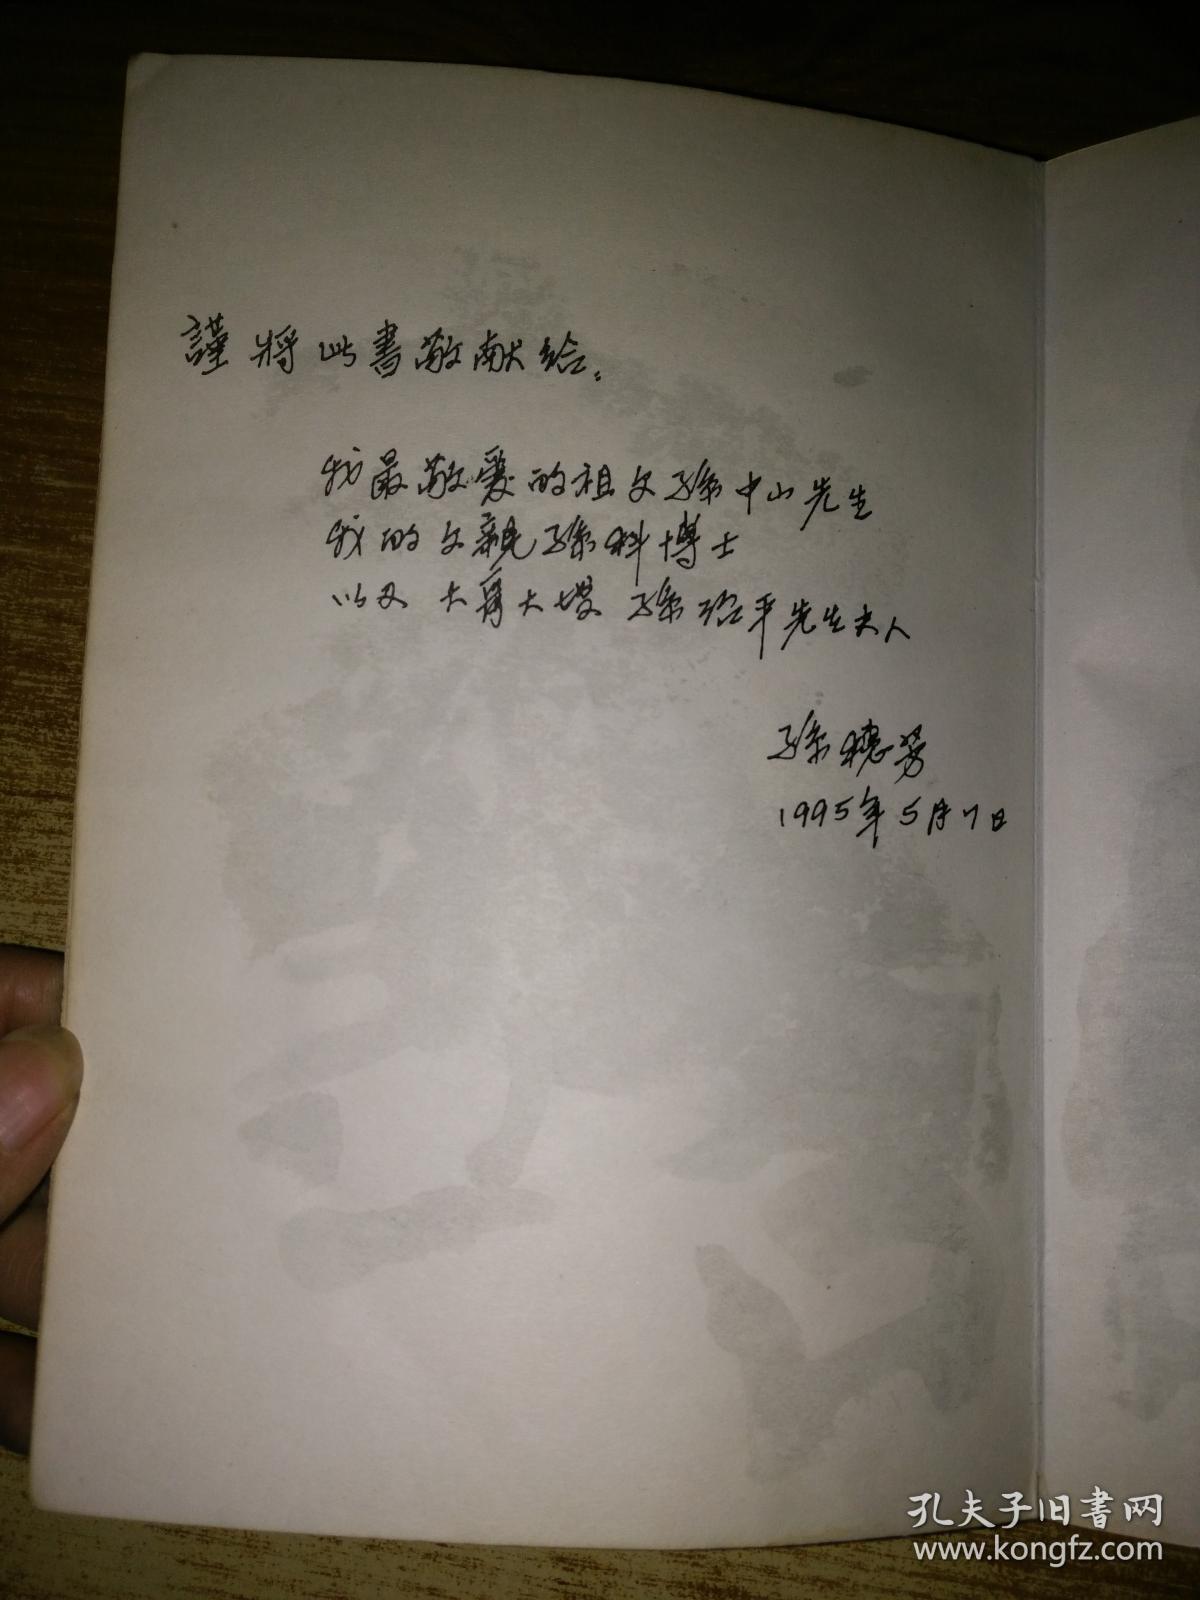 謹將此書敬献给：
我最敬爱的祖父孫中山先生
我的父親孫科博士
以及大哥大嫂孫治平先生夫人
孫穗芳
1995年5月7日
孔夫子旧書网
www.kongfz.com